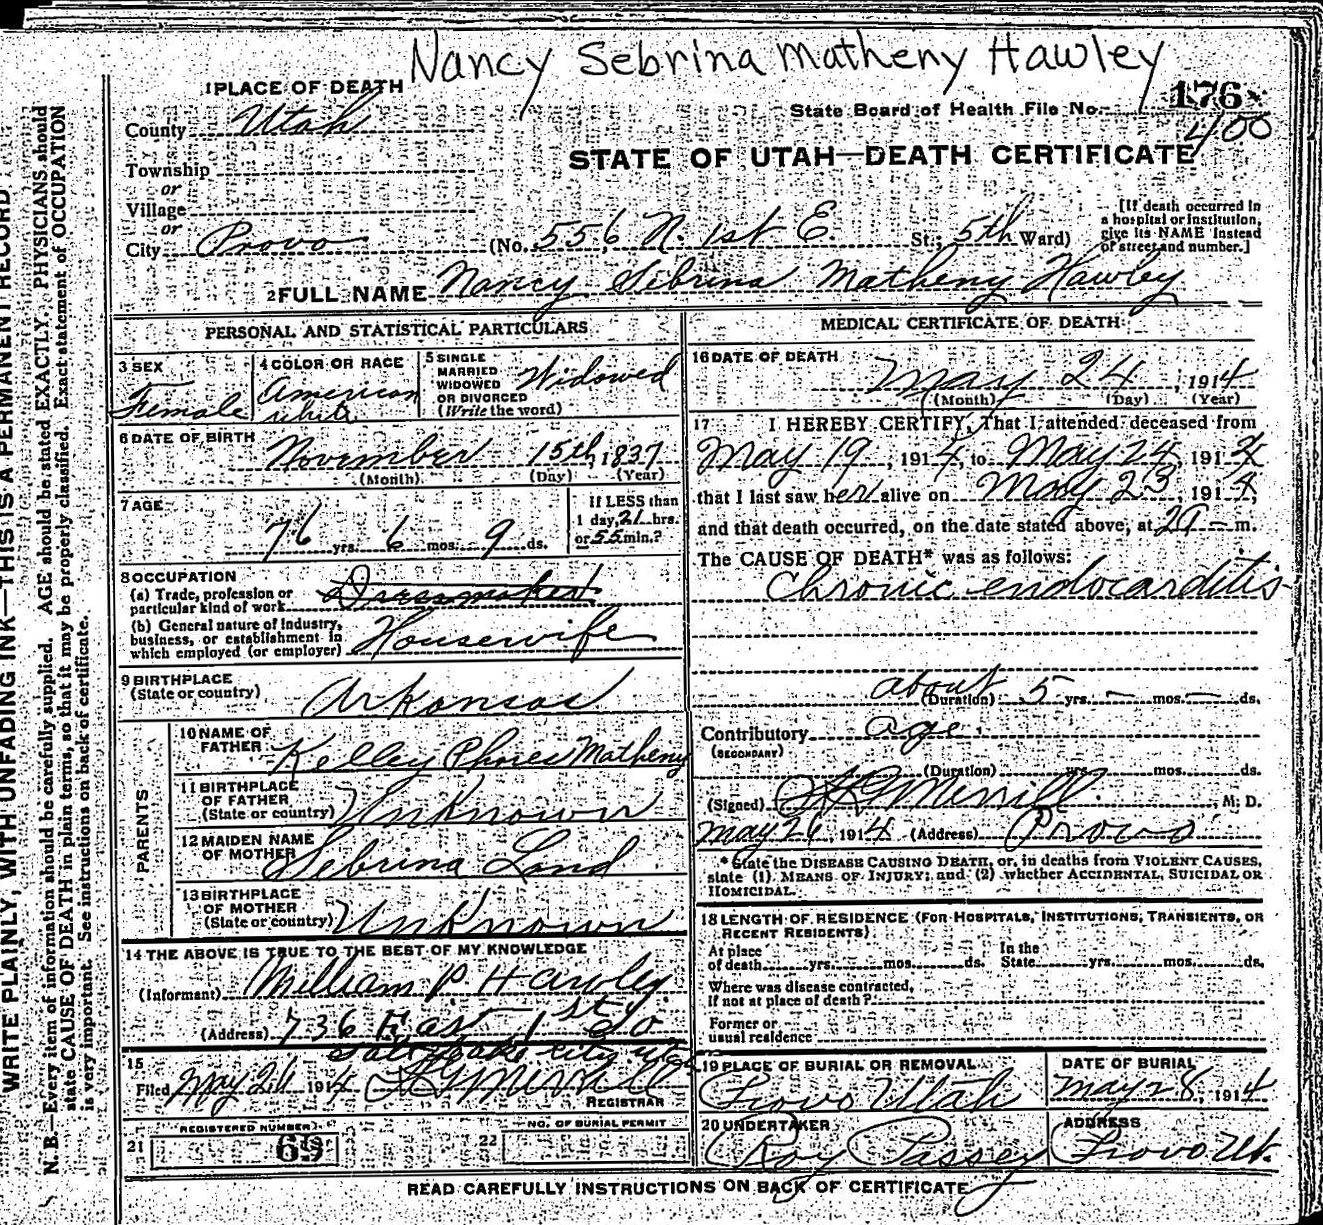 Nancy Sebrina Matheny Hawley
1 PLACE OF DEATH
State Board of Health File No. 176
400
County Utah
STATE OF UTAH—DEATH CERTIFICATE
Township
or
Village
or
City Provo (No. 556 N. 1st E. St.; 5th Ward)
[If death occurred in
a hospital or institution,
give its NAME instead
of street and number.]
2 FULL NAME Nancy Sebrina Matheny Hawley
PERSONAL AND STATISTICAL PARTICULARS
3 SEX
Female
4 COLOR OR RACE
American
white
5 SINGLE
MARRIED
WIDOWED
OR DIVORCED
(Write the word)
Widowed
6 DATE OF BIRTH
November 15th, 1837
(Month) (Day) (Year)
7 AGE
76 yrs. 6 mos. 9 ds.
If LESS than
1 day, 21 hrs.
or 55 min.?
8 OCCUPATION
(a) Trade, profession or
particular kind of work Dressmaker
(b) General nature of Industry,
business, or establishment in
which employed (or employer) Housewife
9 BIRTHPLACE
(State or country) Arkansas
PARENTS
10 NAME OF
FATHER Kelley Matheny
11 BIRTHPLACE
OF FATHER
(State or country) Unknown
12 MAIDEN NAME
OF MOTHER Sebrina Land
13 BIRTHPLACE
OF MOTHER
(State or country) Unknown
14 THE ABOVE IS TRUE TO THE BEST OF MY KNOWLEDGE
(Informant) William P. Hawley
(Address) 736 East 1st So
Salt Lake City
15
Filed May 1914
REGISTRAR
REGISTERED NUMBER
21 69
22 NO. OF BURIAL PERMIT
MEDICAL CERTIFICATE OF DEATH
16 DATE OF DEATH
May 24, 1914
(Month) (Day) (Year)
17 I HEREBY CERTIFY, That I attended deceased from
May 19, 1914, to May 24, 1914
that I last saw her alive on May 23, 1914,
and that death occurred, on the date stated above, at m.
The CAUSE OF DEATH* was as follows:
Chronic endocarditis
about
(Duration) 5 yrs. — mos. — ds.
Contributory age.
(SECONDARY)
(Duration) yrs. mos. ds.
(Signed) Merrill, M. D.
May 26, 1914 (Address) Provo
* State the DISEASE CAUSING DEATH, or, in deaths from VIOLENT CAUSES,
state (1) MEANS OF INJURY; and (2) whether ACCIDENTAL, SUICIDAL OR
HOMICIDAL.
18 LENGTH OF RESIDENCE (FOR HOSPITALS, INSTITUTIONS, TRANSIENTS, OR
RECENT RESIDENTS)
At place
of death yrs. mos. ds.
In the
State yrs. mos. ds.
Where was disease contracted,
If not at place of death?
Former or
usual residence
19 PLACE OF BURIAL OR REMOVAL
Provo Utah
DATE OF BURIAL
May 28, 1914
20 UNDERTAKER
Roy Passey
ADDRESS
Provo Ut.
READ CAREFULLY INSTRUCTIONS ON BACK OF CERTIFICATE
WRITE PLAINLY, WITH UNFADING INK—THIS IS A PERMANENT RECORD
N. B.—Every item of information should be carefully supplied. AGE should be stated EXACTLY. PHYSICIANS should
state CAUSE OF DEATH in plain terms, so that it may be properly classified. Exact statement of OCCUPATION
is very important. See instructions on back of certificate.